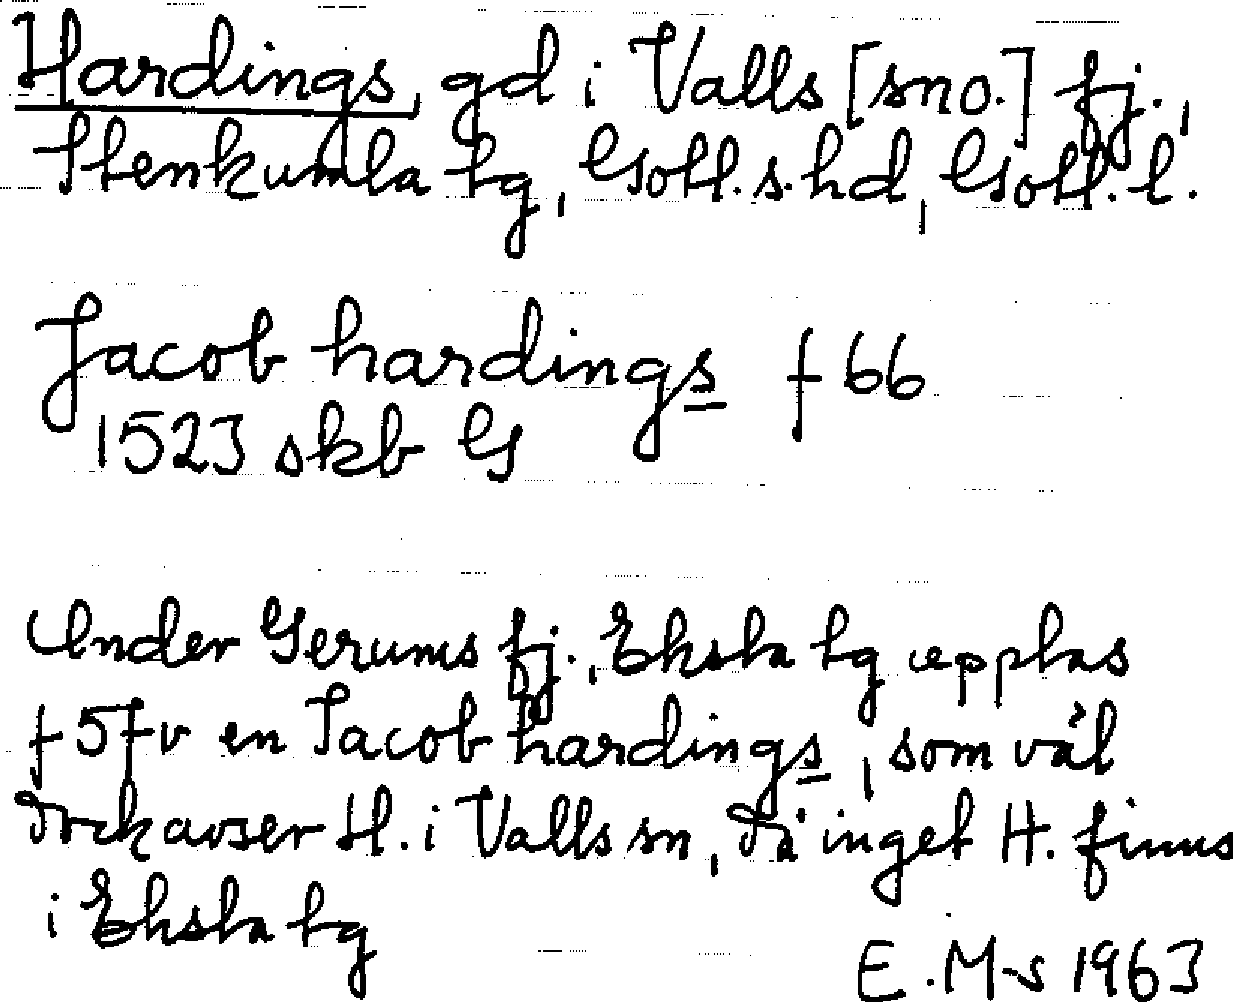 Hardings, gd i Valls [sno.] fj.,
Stenkumla tg, Gotl. s. hd, Gotl. l.
Jacob hardings f 66
1523 skb G
Under Gerums fj., Eksta tg upptas
f 57v en Jacob hardings, som väl
dock avser H. i Valls sn, då inget H. finns
i Eksta tg
E. M-s 1963